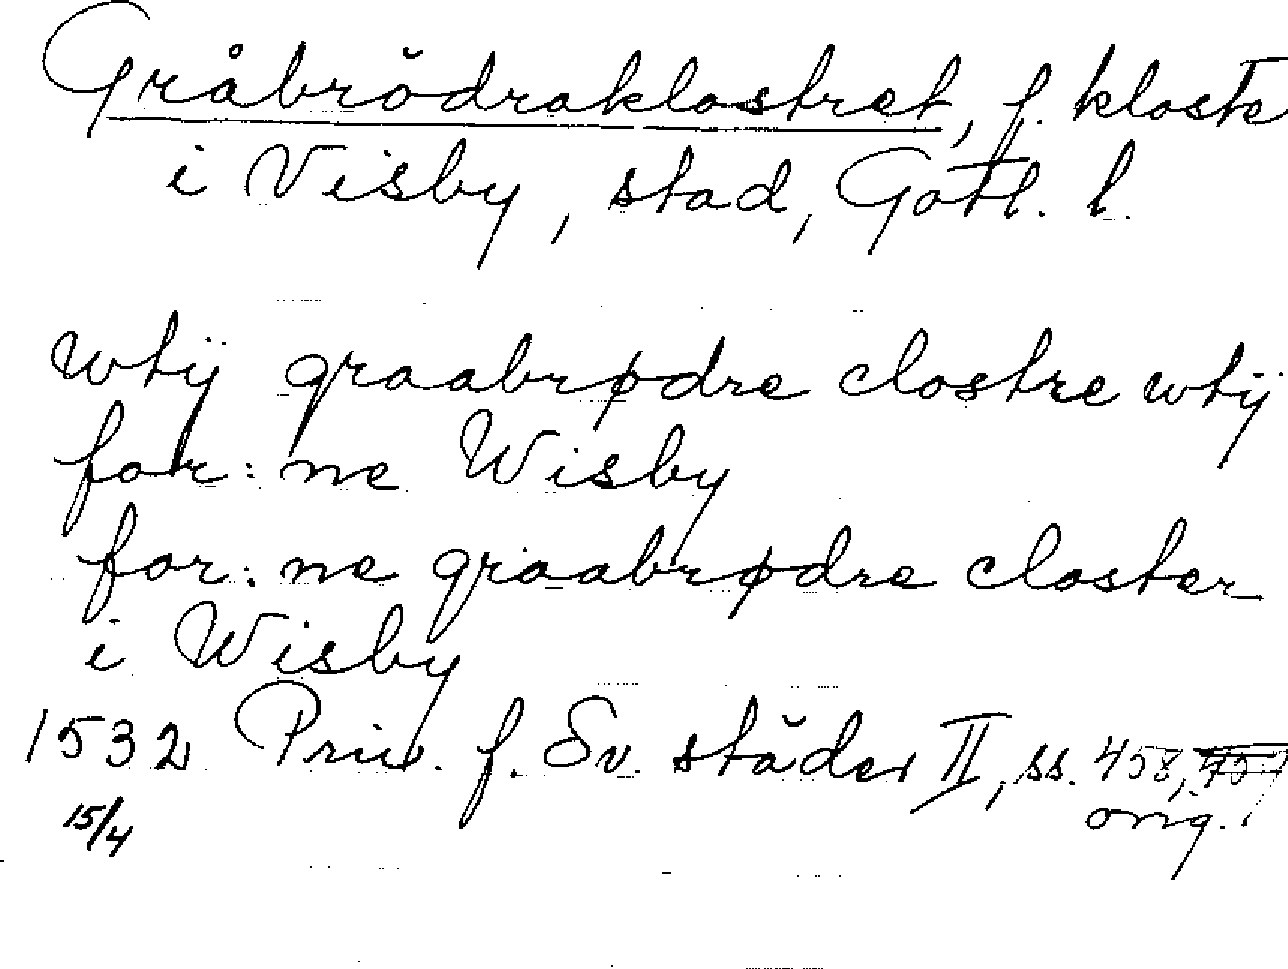 Gråbrödraklostret, f. kloste
i Visby, stad, Gotl. l.
wtij graabrødre clostre wtij
for: ne Wisby
for: ne graabrødre closter
i Wisby
1532 Priv. f. Sv. städer II, ss. 458,
15/4 orig.